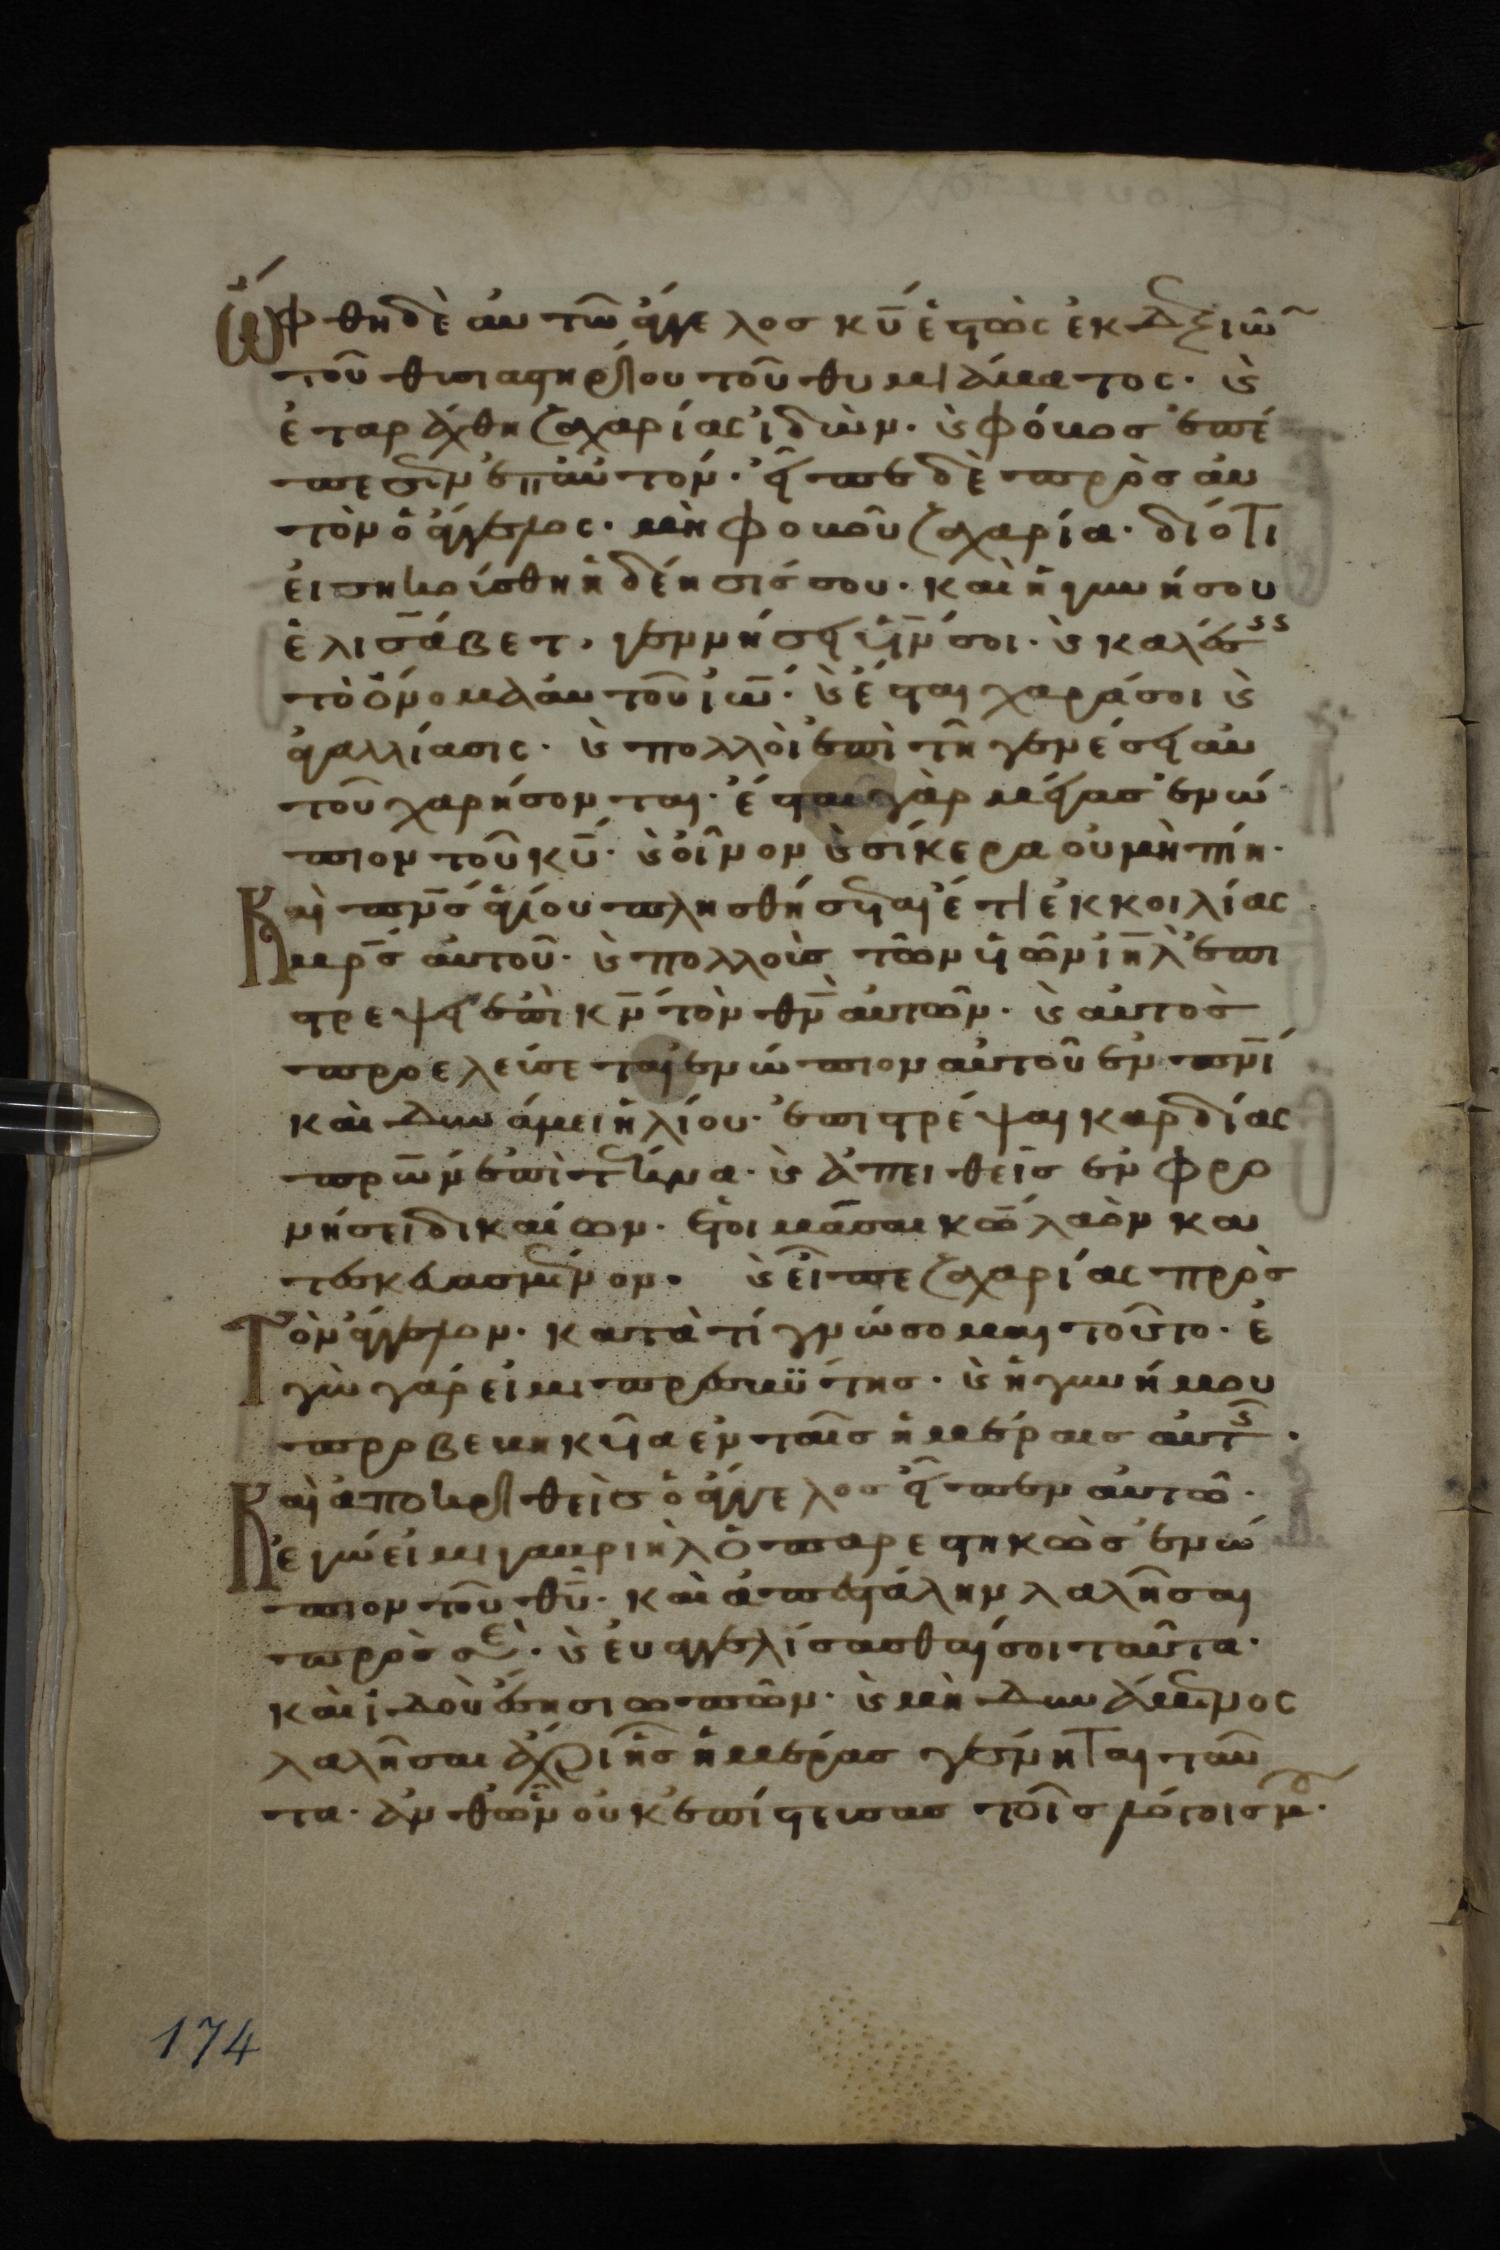 ὤφθη δὲ αὐτῶ ἄγγελος κ̅υ̅ ἑστὼς ἐκ δεξιῶ
τοῦ θυσιαστηρίου τοῦ θυμιάματος· καὶ
ἐταράχθη ζαχαρίας ἰδὼν· καὶ φόβος ἐπέ
πεσεν ἐπ αὐτόν· εἶπε δὲ πρὸς αὐ
τὸν ὁ ἄγγελος· μὴ φοβοῦ ζαχαρία· διότι
εἰσηκούσθη ἡ δέησίς σου· καὶ ἡ γυνή σου
ἐλισάβετ, γεννήσει υ̅ν̅ σοι· καὶ καλέσεις
τὸ ὄνομα αὐτοῦ ἰω̅· καὶ ἔσται χαρά σοι καὶ
ἀγαλλίασις· καὶ πολλοὶ ἐπὶ τῆ γενέσει αὐ
τοῦ χαρήσονται· ἔσται γὰρ μέγας ἐνώ
πιον τοῦ κ̅υ̅· καὶ οἶνον καὶ σίκερα οὐ μὴ πίη·
Καὶ π̅ν̅ς ἁγίου πλησθήσεται ἔτι ἐκ κοιλίας
μ̅ρ̅ς αὐτοῦ· καὶ πολλοὺς τῶν υἱῶν ι̅η̅λ̅ ἐπι
στρέψει ἐπὶ κ̅ν̅ τὸν θ̅ν̅ αὐτῶν· καὶ αὐτὸς
προελεύσεται ἐνώπιον αὐτοῦ ἐν π̅ν̅ι
καὶ δυνάμει ἡλίου· ἐπιστρέψαι καρδίας
π̅ρ̅ων ἐπὶ τέκνα· καὶ ἀπειθεῖς ἐν φρο
νήσει δικαίων· ἑτοιμάσαι κ̅ω̅ λαὸν κα
τεσκευασμένον· καὶ εἶπε ζαχαρίας πρὸς
Τὸν ἄγγελον· κατὰ τί γνώσομαι τοῦτο· ἐ
γὼ γάρ εἰμι πρεσβύτης· καὶ ἡ γυνή μου
προβεβηκυῖα ἐν ταῖς ἡμέραις αὐτῆς·
Καὶ ἀποκριθεὶς ὁ ἄγγελος εἶπεν αὐτῶ·
ἐγώ εἰμι γαβριὴλ ὁ παρεστηκὼς ἐνώ
πιον τοῦ θ̅υ̅· καὶ ἀπεστάλην λαλῆσαι
πρὸς σέ· καὶ εὐαγγελίσασθαί σοι ταῦτα·
καὶ ἰδοὺ ἔση σιωπῶν· καὶ μὴ δυνάμενος
λαλῆσαι ἄχρι ἧς ἡμέρας γένηται ταῦ
τα· ἀνθ ὧν οὐκ ἐπίστευσας τοῖς λόγοις μου·
174